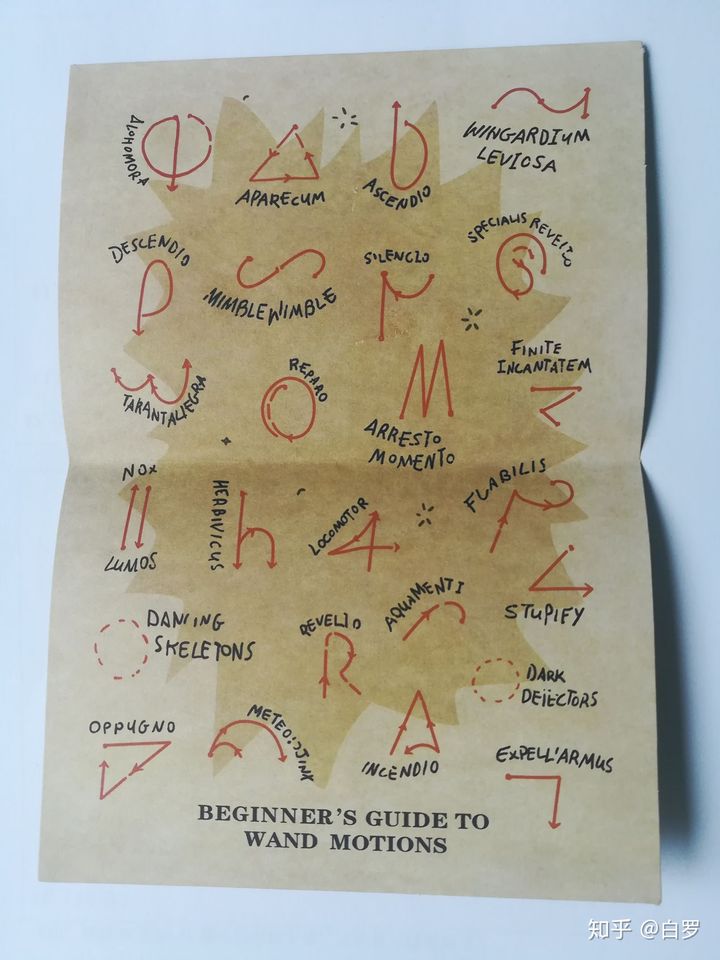 ALOHOMORA
APARECUM
ASCENDIO
WINGARDIUM
LEVIOSA
DESCENDIO
MIMBLEWIMBLE
SILENCIO
SPECIALIS REVELIO
TARANTALLEGRA
REPARO
ARRESTO
MOMENTO
FINITE
INCANTATEM
NOX
LUMOS
HERBIVICUS
LOCOMOTOR
FLABILIS
STUPIFY
DANCING
SKELETONS
REVELIO
AQUAMENTI
DARK
DETECTORS
OPPUGNO
METEOJINX
INCENDIO
EXPELL'ARMUS
BEGINNER'S GUIDE TO
WAND MOTIONS
知乎 @白罗